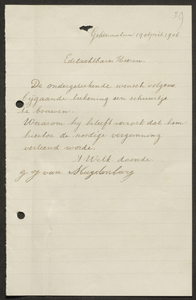 Geldermalsen 19 April 1906
Edelachtbare Heeren
De ondergeteekende wensch volgens
bijgaande teekening een schuurtje
te bouwen
Waarom hij beleeft verzoekt dat hem
hierbij de noodige vergunning
verleend worde.
't Welk doende
G J van Kuijlenburg